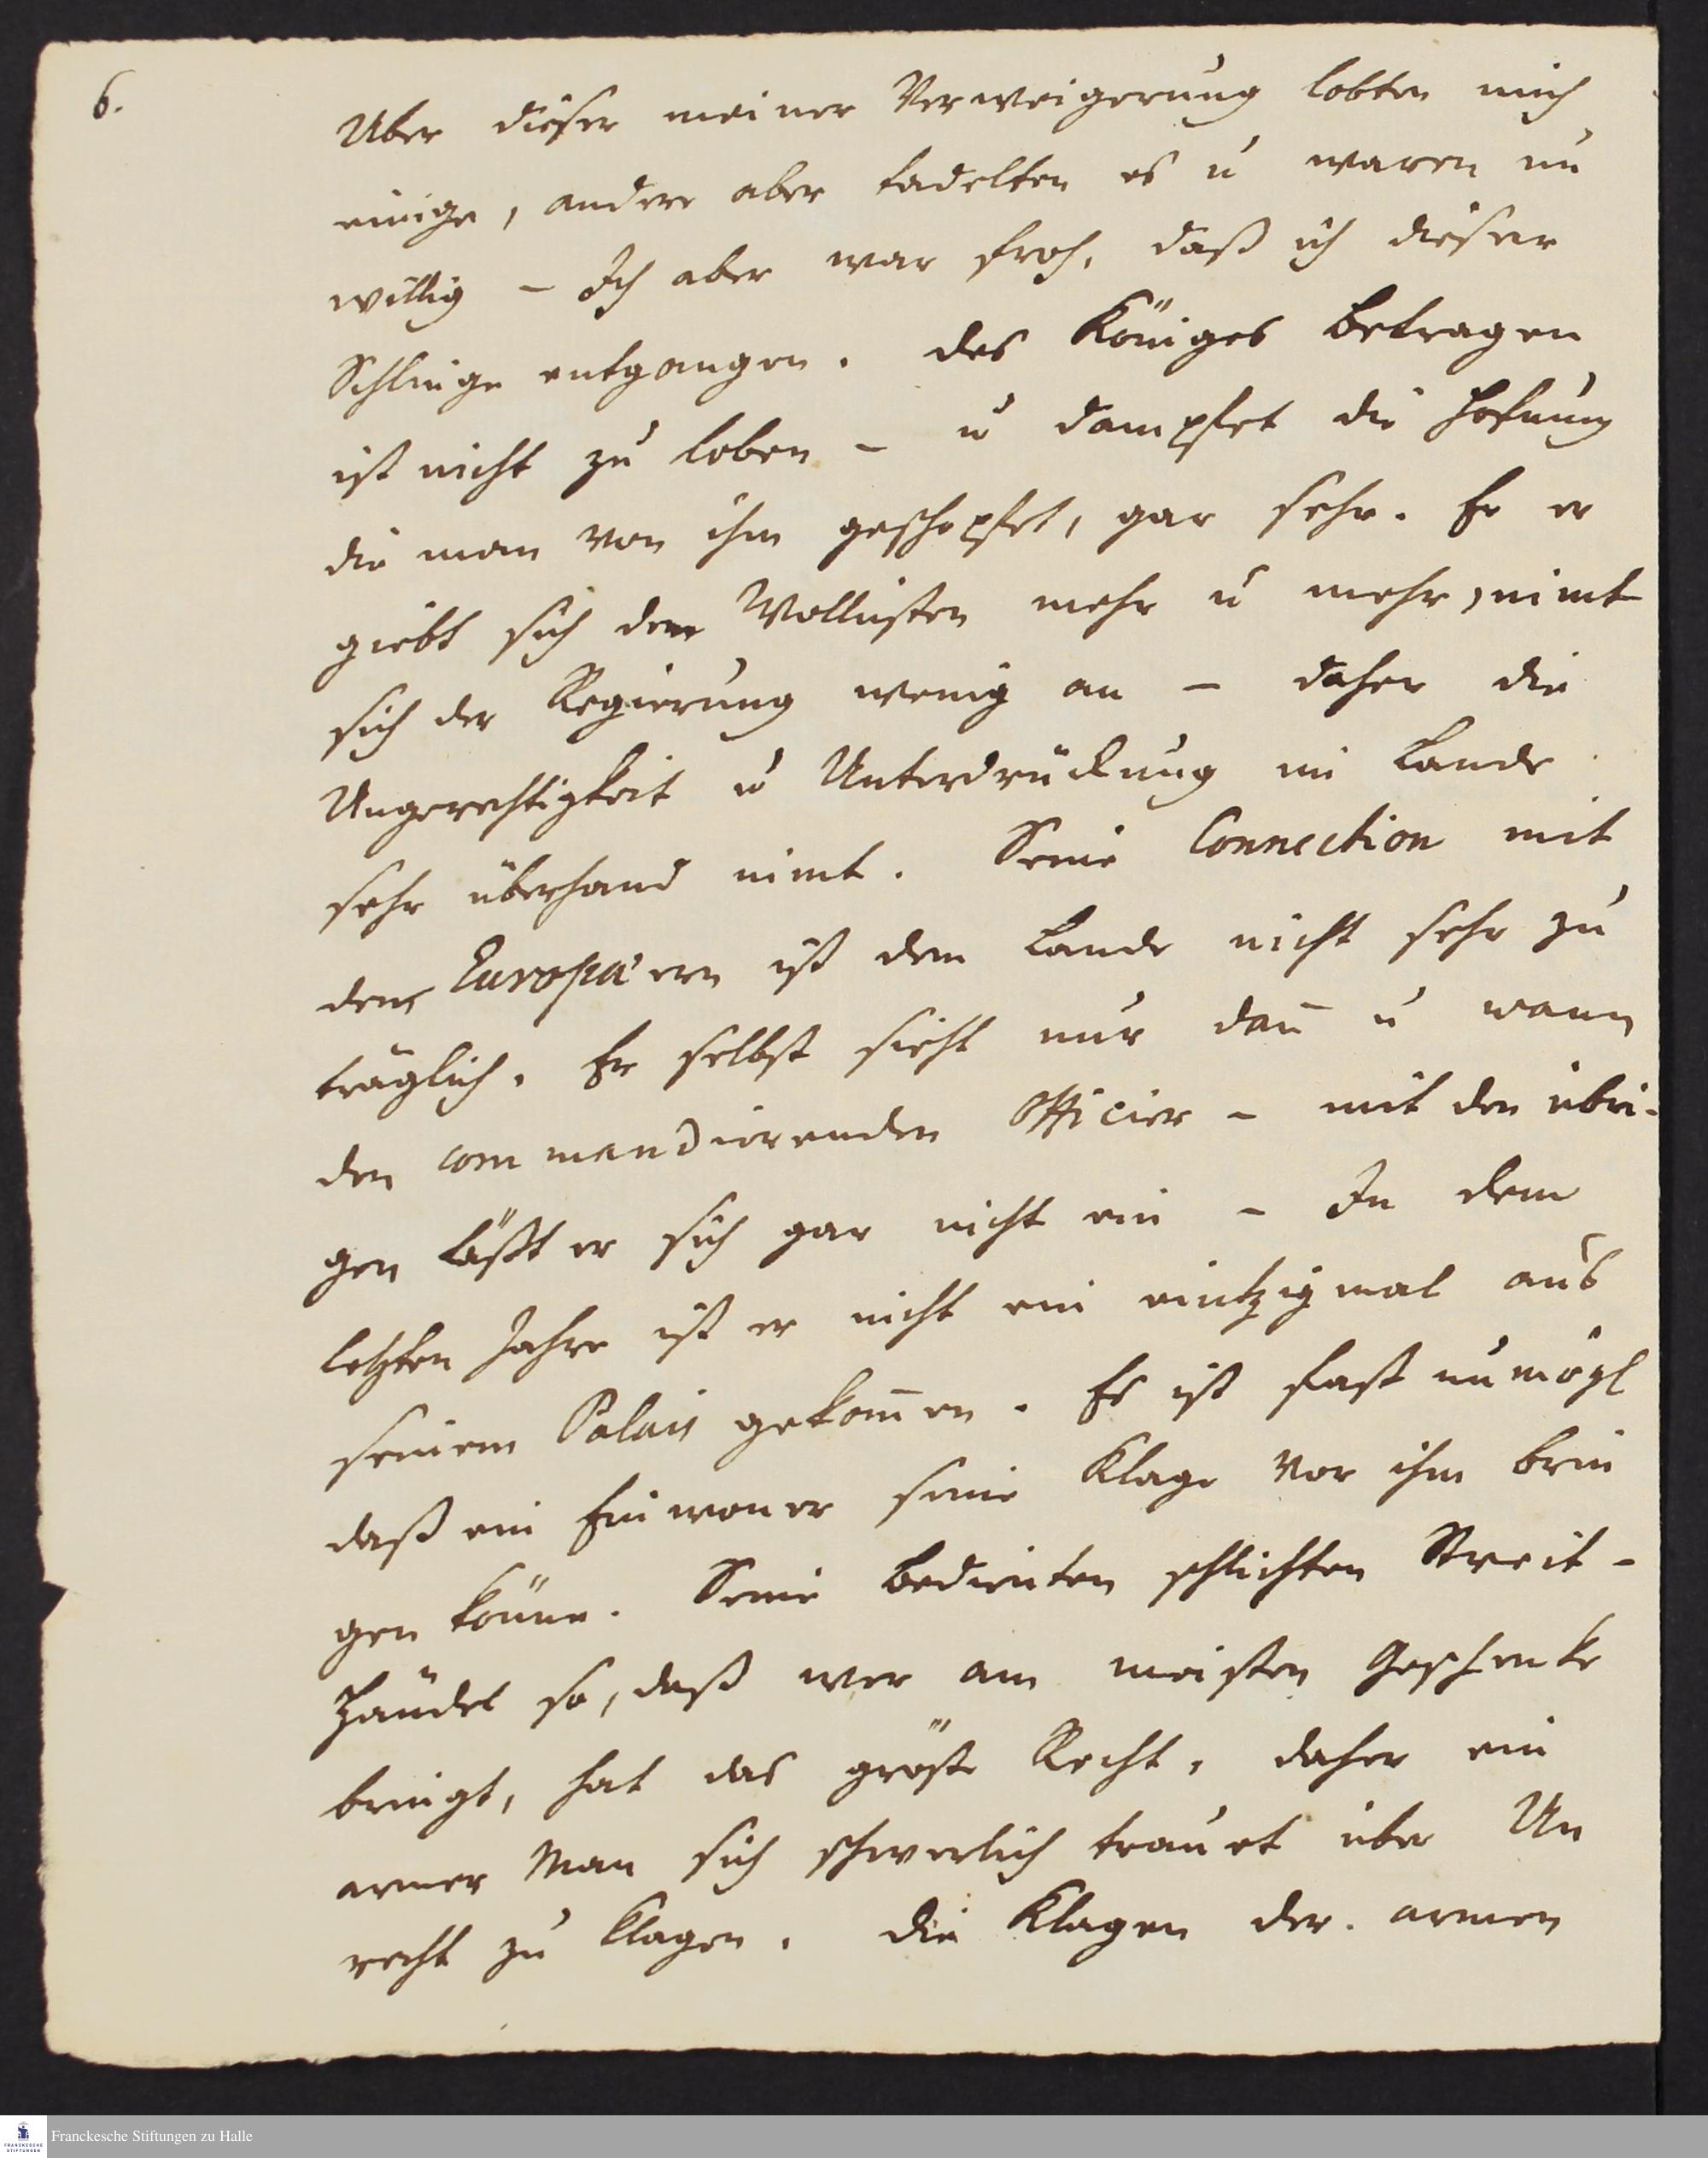 6.
Uber dieser meiner Verweigerung lobten mich
einige, andere aber tadelten es u waren un
willig – Ich aber war froh, daß ich dieser
Schlinge entgangen. Des Königes Betragen
ist nicht zu loben – u dampfet die Hofnung
die man von ihm geschopfet, gar sehr. Er er
giebt sich den Wollusten mehr u mehr, nimt
sich der Regierung wenig an – daher die
Ungerechtigkeit u Unterdrückung im Lande
sehr überhand nimt. Seine Connection mit
den Europäern ist dem Lande nicht sehr zu
träglich. Er selbst sieht nur dan̄ u wann
den commendirenden Officier – mit den übri-
gen läßt er sich gar nicht ein – In dem
letzten Jahre ist er nicht ein eintzigmal aus
seinem Palais gekom̄en. Es ist fast unmögl
daß ein Einwoner seine Klage vor ihm brin
gen könne. Seine Bedienten schlichten Streit-
Händel so, daß wer am meisten Geschenke
bringt, hat das gröste Recht, daher ein
armer Man sich schwerlich trauet über Un
recht zu klagen. Die Klagen der armen
Franckesche Stiftungen zu Halle